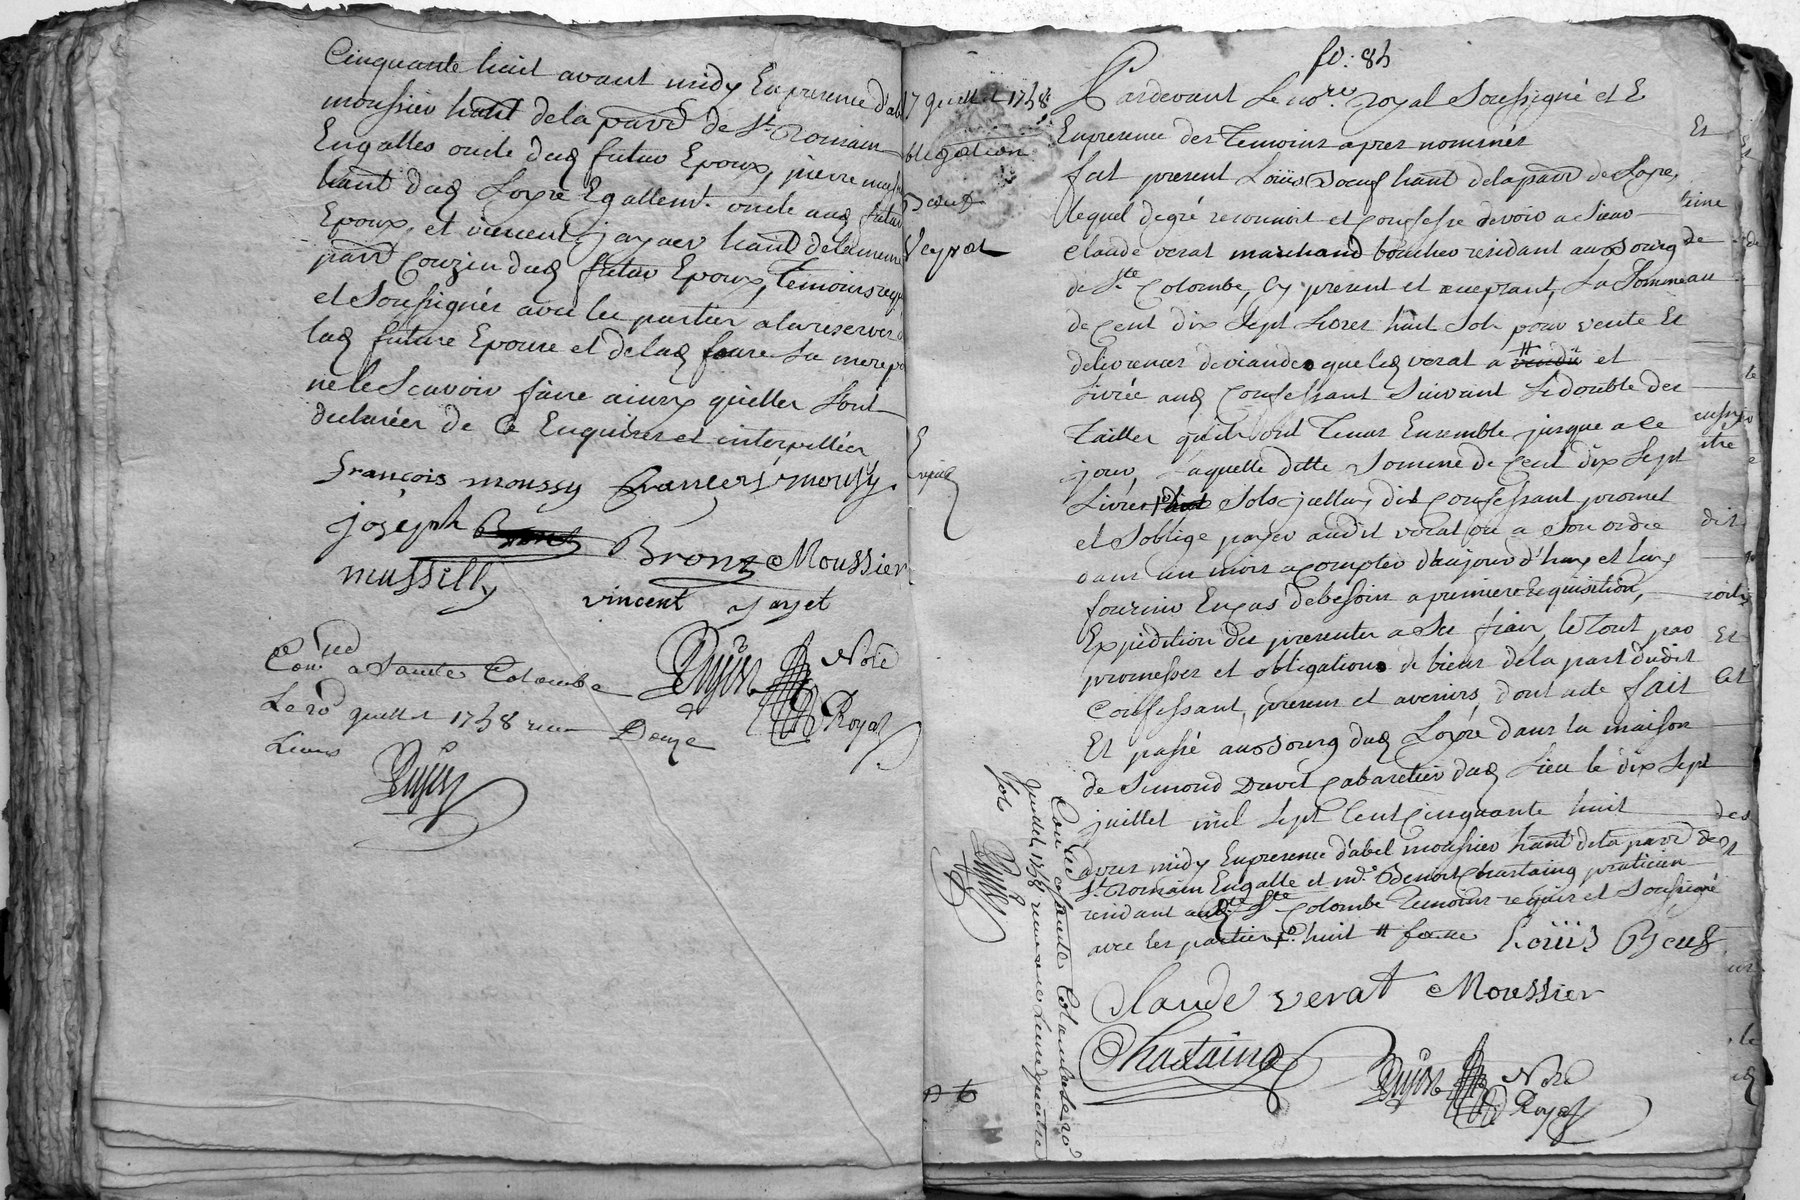 Cinquante huit avant midy En presence d'ab
moussier hant dela parr de St Romain
En galles oncle dud futur Epoux, pierre mus
hant dud Loyre Egallemt oncle aud futur
Epoux, et vincent jayaer hant delameme
parr Couzin dud futur Epoux, temoins requ
et Soussignés avec les parties alareserve
lad future Epouse et delad faure Sa mere p
ne le Scavoir faire ainsy quelles Sont
declarées de Ce Enquises et interpellées
françois moussy francois mousy
joseph Bronz Moussier
mussilly
vincent jayet
Conlé a Sainte Colombe
Le 20 juillet 1758 reçu Douze
Livres
Dujon
Dujon Nore
Royal
17 juillet 1758
obligation
Boeuf
Verat
Expié
fo: 84
Pardevant Le nore royal Soussigné et E
Enpresence des Temoins apres nommés
fut present Loüis Boeuf hant dela parr de Loyre,
lequel degré reconnoit et Confesse devoir a Sieur
Claude verat marchand boucher residant au Bourg de
de Ste Colombe, Cy present et acceptant, La Somme
de Cent dix Sept Livres huit Sols pour vente Et
delivrances de viandes que led verat a vendü et
Livrée aud Confessant Suivant Le double des
Tailles qu'ils ont Tenus Ensemble jusque a Ce
jour, Laquelle ditte Somme de Cent dix Sept
Livres huit Sols jcelluy dit Confessant promet
et Soblige payer audit verat ou a Son ordre
dans un mois acompter daujourd'huy et luy
fournir En cas debesoin a premiere requisition,
Expedition des presentes a Ses frais, le Tout par
promesses et obligations de biens dela part dudit
Confessant, presens et avenirs, dont acte fait
Et passé au Bourg dud Loyre dans la maison
de Simond Duvet Cabaretier dud Lieu le dix Sept
juillet mil Sept Cent Cinquante huit
apres midy En presence d'abel moussier hant dela parr de
St Romain Engalle et me Benoit Chastaing praticien
residant aud Ste Colombe Temoins requis et Soussignés
avec les parties huit faure Loüis Boeuf
Claude verat Moussier
Chastaing
Dujon Nore
Royal
Conlé a Sainte Colombe le 20
juillet 1758 reçu Livre quatre
sols
Dujon